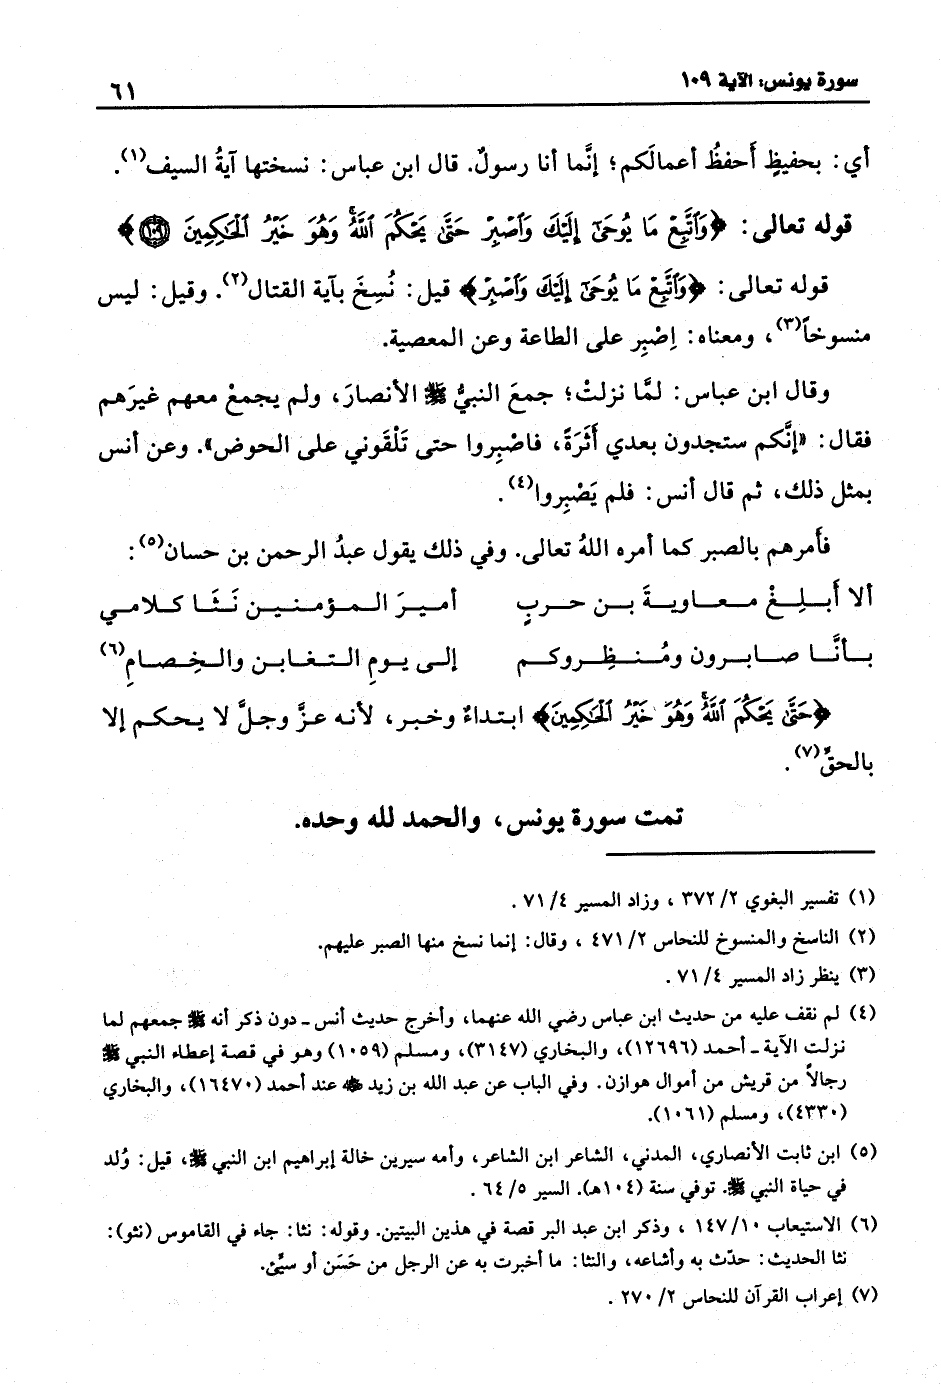 سورة يونس: الآية ١٠٩
٦١
أي: بحفيظٍ أَحفظُ أعمالَكم؛ إنَّما أنا رسولٌ. قال ابن عباس: نسختها آيةُ السيف(١).
قوله تعالى: ﴿وَٱتَّبِعْ مَا يُوحَىٰٓ إِلَيْكَ وَٱصْبِرْ حَتَّىٰ يَحْكُمَ ٱللَّهُۚ وَهُوَ خَيْرُ ٱلْحَٰكِمِينَ ١٠٩﴾
قوله تعالى: ﴿وَٱتَّبِعْ مَا يُوحَىٰٓ إِلَيْكَ وَٱصْبِرْ﴾ قيل: نُسِخَ بآية القتال(٢). وقيل: ليس
منسوخاً(٣)، ومعناه: اِصْبِر على الطاعة وعن المعصية.
وقال ابن عباس: لمَّا نزلتْ؛ جمعَ النبيُّ ﷺ الأنصارَ، ولم يجمعْ معهم غيرَهم
فقال: «إنَّكم ستجدون بعدي أَثَرَةً، فاصْبِروا حتى تَلْقَوني على الحوض». وعن أنس
بمثل ذلك، ثم قال أنس: فلم يَصْبِروا(٤).
فأَمرهم بالصبر كما أمره اللهُ تعالى. وفي ذلك يقول عبدُ الرحمن بن حسان(٥):
ألا أَبـلِـغْ مـعـاويـةَ بـن حـربٍ أمـيـرَ الـمـؤمـنـيـن نَـثَـا كـلامـي
بـأنَّـا صـابـرون ومُـنـظِـروكـم إلـى يـومِ الـتـغـابـن والـخِـصـامِ(٦)
﴿حَتَّىٰ يَحْكُمَ ٱللَّهُۚ وَهُوَ خَيْرُ ٱلْحَٰكِمِينَ﴾ ابتداءٌ وخبر، لأنه عزَّ وجلَّ لا يحكم إلا
بالحقِّ(٧).
تمت سورة يونس، والحمد لله وحده.
(١) تفسير البغوي ٢/ ٣٧٢ ، وزاد المسير ٤/ ٧١ .
(٢) الناسخ والمنسوخ للنحاس ٢/ ٤٧١ ، وقال: إنما نسخ منها الصبر عليهم.
(٣) ينظر زاد المسير ٤/ ٧١ .
(٤) لم نقف عليه من حديث ابن عباس رضي الله عنهما، وأخرج حديث أنس ـ دون ذكر أنه ﷺ جمعهم لما
نزلت الآية ـ أحمد (١٢٦٩٦)، والبخاري (٣١٤٧)، ومسلم (١٠٥٩) وهو في قصة إعطاء النبي ﷺ
رجالاً من قريش من أموال هوازن. وفي الباب عن عبد الله بن زيد ﷺ عند أحمد (١٦٤٧٠)، والبخاري
(٤٣٣٠)، ومسلم (١٠٦١).
(٥) ابن ثابت الأنصاري، المدني، الشاعر ابن الشاعر، وأمه سيرين خالة إبراهيم ابن النبي ﷺ، قيل: وُلد
في حياة النبي ﷺ. توفي سنة (١٠٤هـ). السير ٥/ ٦٤ .
(٦) الاستيعاب ١٠/ ١٤٧ ، وذكر ابن عبد البر قصة في هذين البيتين. وقوله: نثا: جاء في القاموس (نثو):
نثا الحديث: حدّث به وأشاعه، والنثا: ما أخبرت به عن الرجل من حَسَن أو سيِّئ.
(٧) إعراب القرآن للنحاس ٢/ ٢٧٠ .